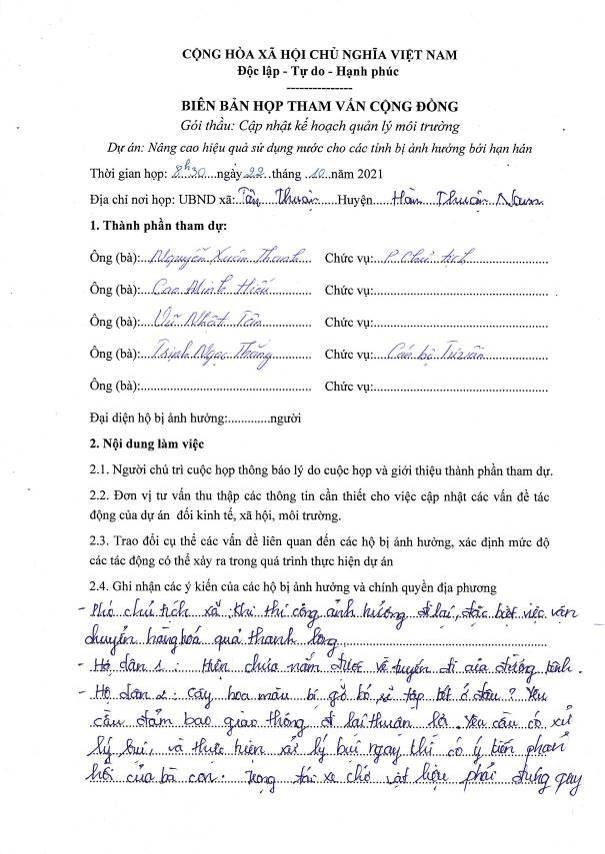 CỘNG HÒA XÃ HỘI CHỦ NGHĨA VIỆT NAM
Độc lập - Tự do - Hạnh phúc
---------------
BIÊN BẢN HỌP THAM VẤN CỘNG ĐỒNG
Gói thầu: Cập nhật kế hoạch quản lý môi trường
Dự án: Nâng cao hiệu quả sử dụng nước cho các tỉnh bị ảnh hưởng bởi hạn hán
Thời gian họp: 8h30 ngày 22 tháng 10 năm 2021
Địa chỉ nơi họp: UBND xã: Tân Thuận Huyện: Hàm Thuận Nam
1. Thành phần tham dự:
Ông (bà): Nguyễn Xuân Thanh Chức vụ: P. Chủ tịch
Ông (bà): Cao Minh Hiếu Chức vụ:
Ông (bà): Vũ Nhật Tân Chức vụ:
Ông (bà): Trịnh Ngọc Thắng Chức vụ: Cán bộ Tư vấn
Ông (bà): Chức vụ:
Đại diện hộ bị ảnh hưởng:.............người
2. Nội dung làm việc
2.1. Người chủ trì cuộc họp thông báo lý do cuộc họp và giới thiệu thành phần tham dự.
2.2. Đơn vị tư vấn thu thập các thông tin cần thiết cho việc cập nhật các vấn đề tác
động của dự án đối kinh tế, xã hội, môi trường.
2.3. Trao đổi cụ thể các vấn đề liên quan đến các hộ bị ảnh hưởng, xác định mức độ
các tác động có thể xảy ra trong quá trình thực hiện dự án
2.4. Ghi nhận các ý kiến của các hộ bị ảnh hưởng và chính quyền địa phương
- Phó chủ tịch xã: Khi thi công ảnh hưởng đi lại, đặc biệt việc vận
chuyển hàng hóa quả thanh long
- Hộ dân 1: Hiện chưa nắm được về tuyến đi của đường ống.
- Hộ dân 2: Cây hoa màu bị gỡ bỏ, sẽ tập kết ở đâu? Yêu
cầu đảm bảo giao thông đi lại thuận lợi. Yêu cầu có xử
lý bụi, và thực hiện xử lý bụi ngay khi có ý kiến phản
hồi của bà con. Trọng tải xe chở vật liệu phải đúng quy